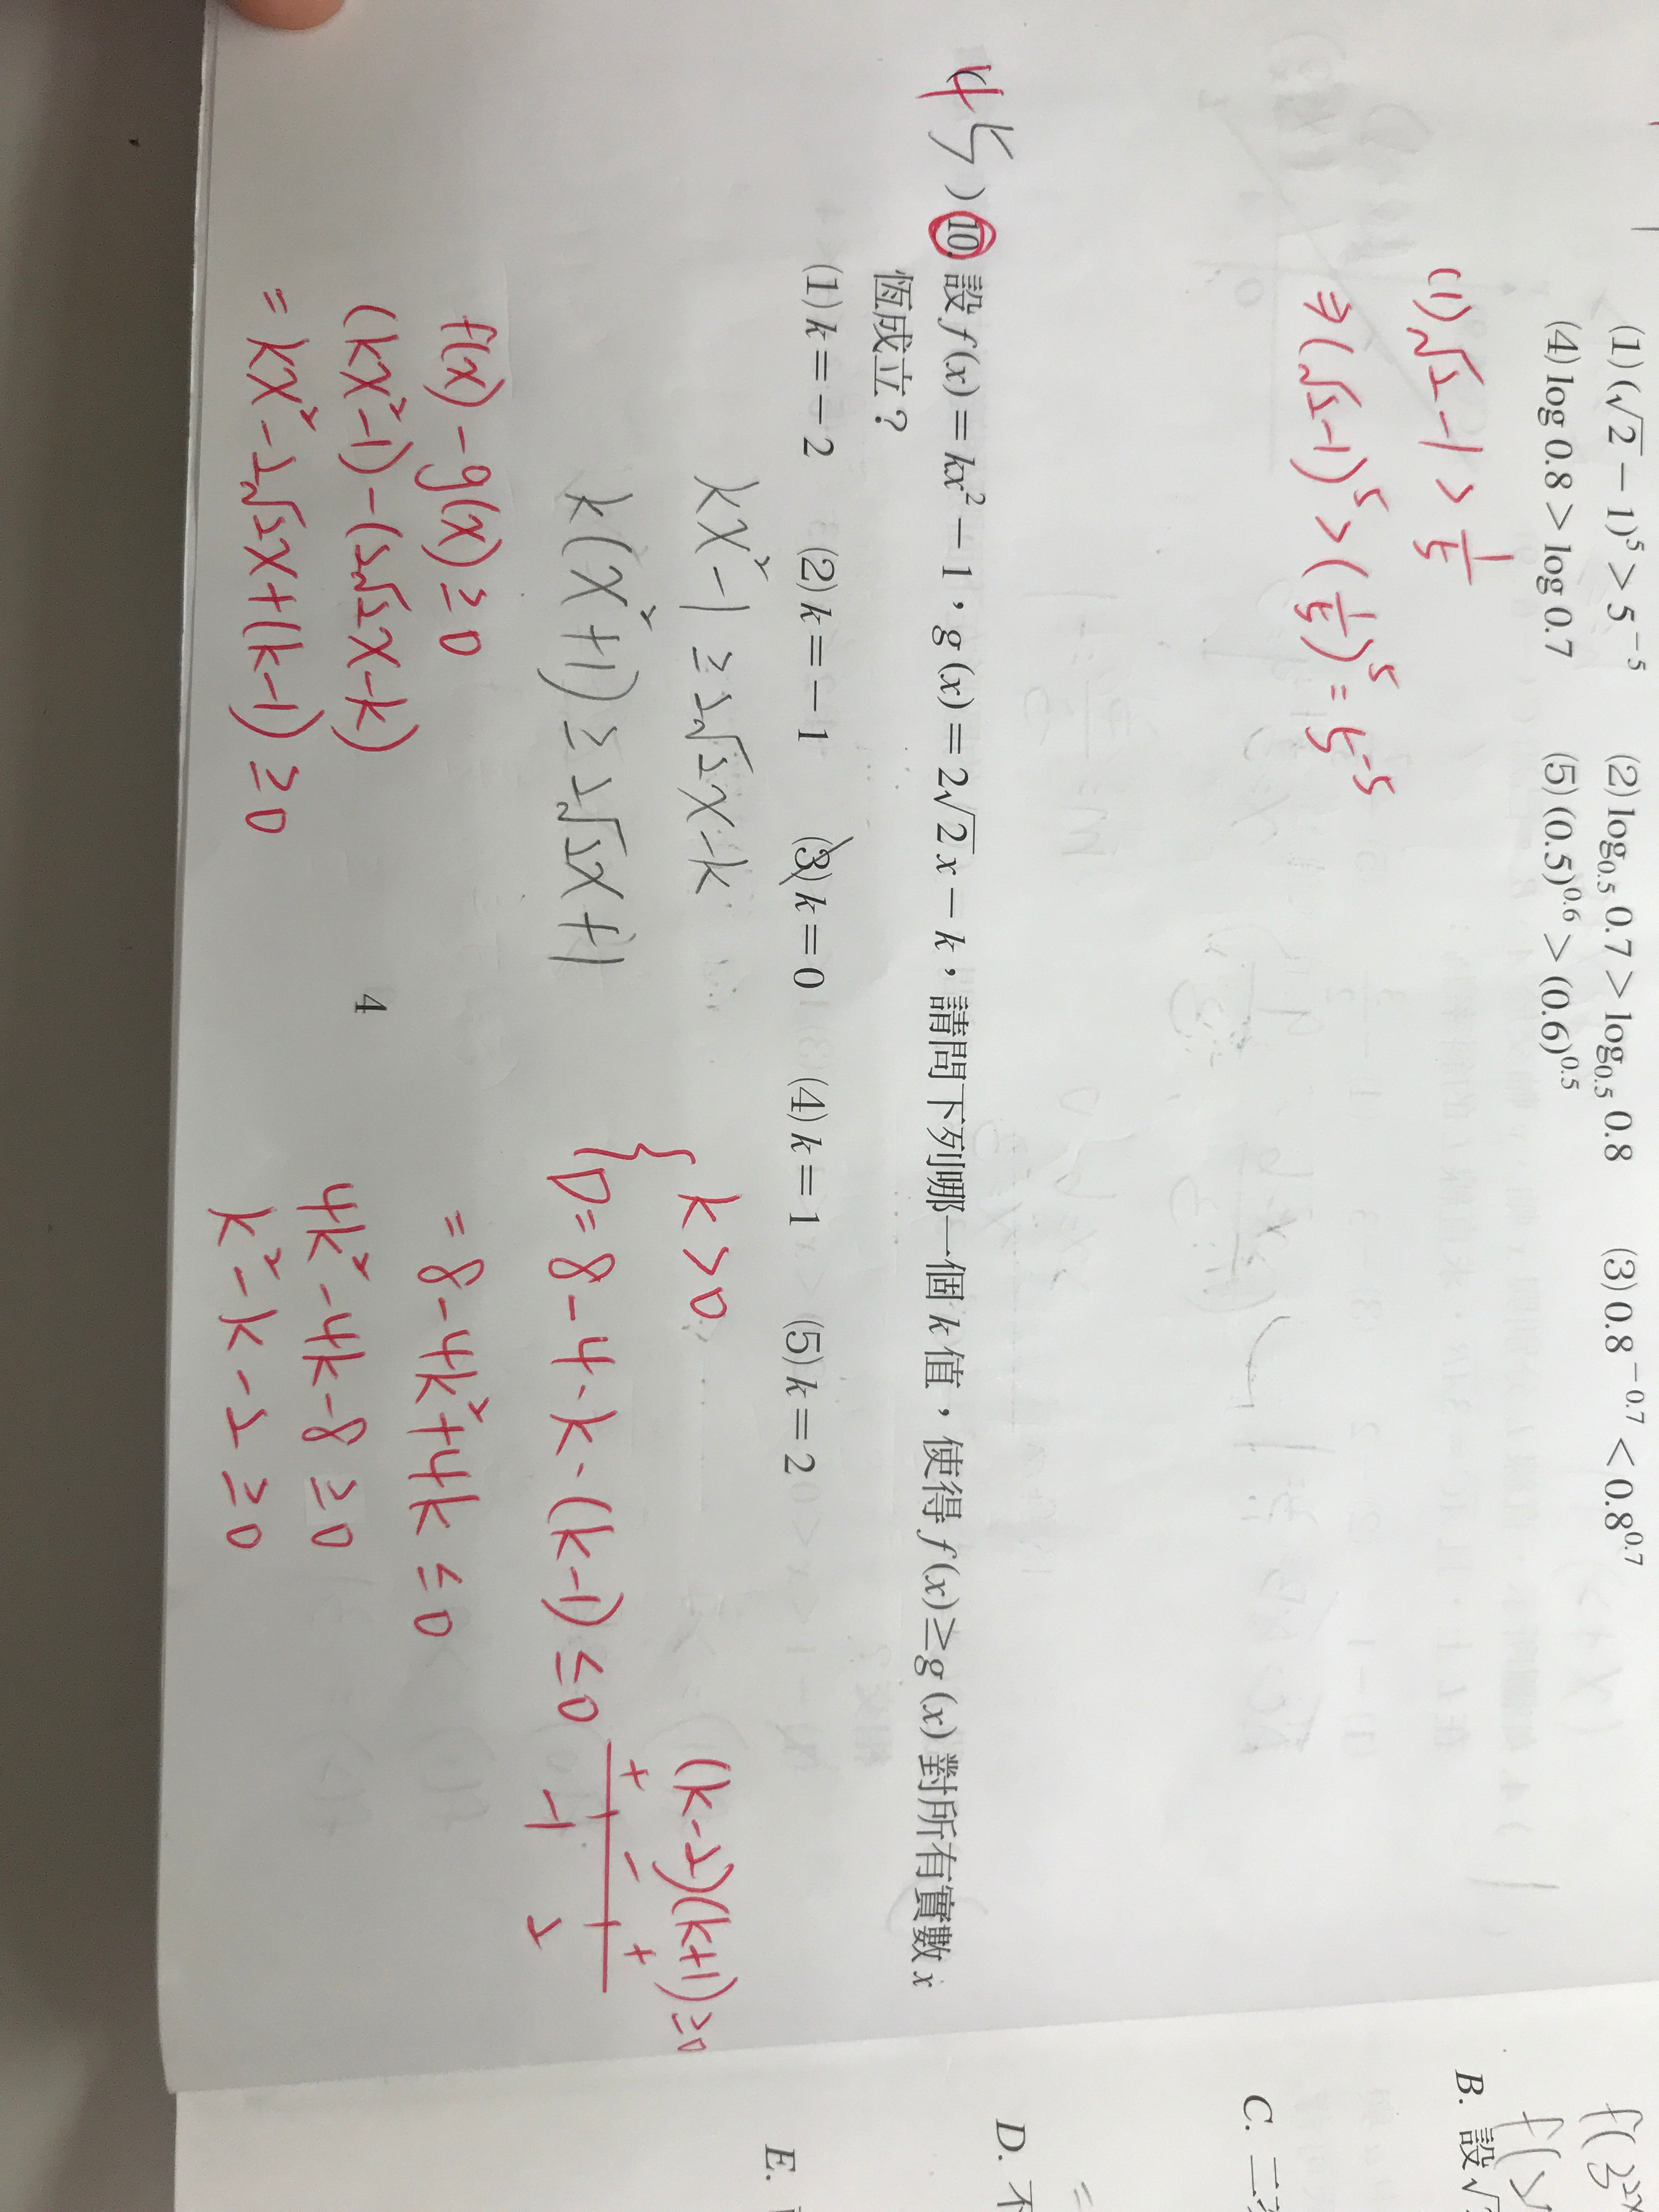 (1) (√2 − 1)⁵ > 5⁻⁵ (2) log₀.₅ 0.7 > log₀.₅ 0.8 (3) 0.8⁻⁰·⁷ < 0.8⁰·⁷
(4) log 0.8 > log 0.7 (5) (0.5)⁰·⁶ > (0.6)⁰·⁵
(1) √2 − 1 > 1/5
⇒ (√2 − 1)⁵ > (1/5)⁵ = 5⁻⁵
4 5 ) 10. 設 f (x) = kx² − 1，g (x) = 2√2 x − k，請問下列哪一個 k 值，使得 f (x) ≥ g (x) 對所有實數 x
恆成立？
(1) k = −2 (2) k = −1 (3) k = 0 (4) k = 1 (5) k = 2
kx² − 1 ≥ 2√2x − k
k(x² + 1) ≥ 2√2x + 1
f(x) − g(x) ≥ 0
(kx² − 1) − (2√2x − k)
= kx² − 2√2x + (k − 1) ≥ 0
{ k > 0
D = 8 − 4 · k · (k − 1) ≤ 0
= 8 − 4k² + 4k ≤ 0
4k² − 4k − 8 ≥ 0
k² − k − 2 ≥ 0
(k − 2)(k + 1) ≥ 0
+ − +
−1 2
4
B. 設 √
C. 二
D. 不
E.